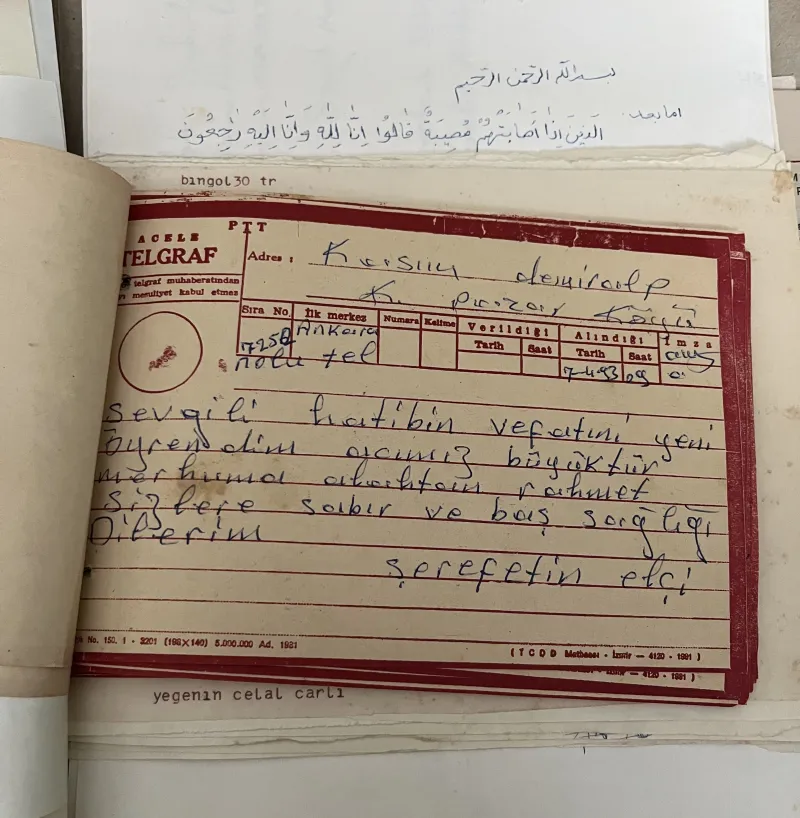 بسم الله الرحمن الرحيم
اما بعد
الَّذِينَ اِذَا أَصَابَتْهُمْ مُصِيبَةٌ قَالُوا اِنَّا لِلَّهِ وَاِنَّا اِلَيْهِ رَاجِعُونَ
bıngol30 tr
PTT
ACELE
TELGRAF
telgraf muhaberatından
mesuliyet kabul etmez
Adres :
demiralp
K. pazar Köyü
Sıra No. İlk merkez Numara Kelime Verildiği Alındığı İmza
Tarih Saat Tarih Saat
7258 Ankara
nolu tel
7-4-93 09
sevgili hatibin vefatını yeni
öyrendim acımız büyüktür
merhuma allahtan rahmet
sizlere sabır ve baş sağlığı
Dilerim
şerefetin elçi
No. 150. 1 - 3201 (198X140) 5.000.000 Ad. 1981
(TCDD Matbaası - İzmir — 4120 - 1981)
4120 - 1981 )
yegenın celal carlı